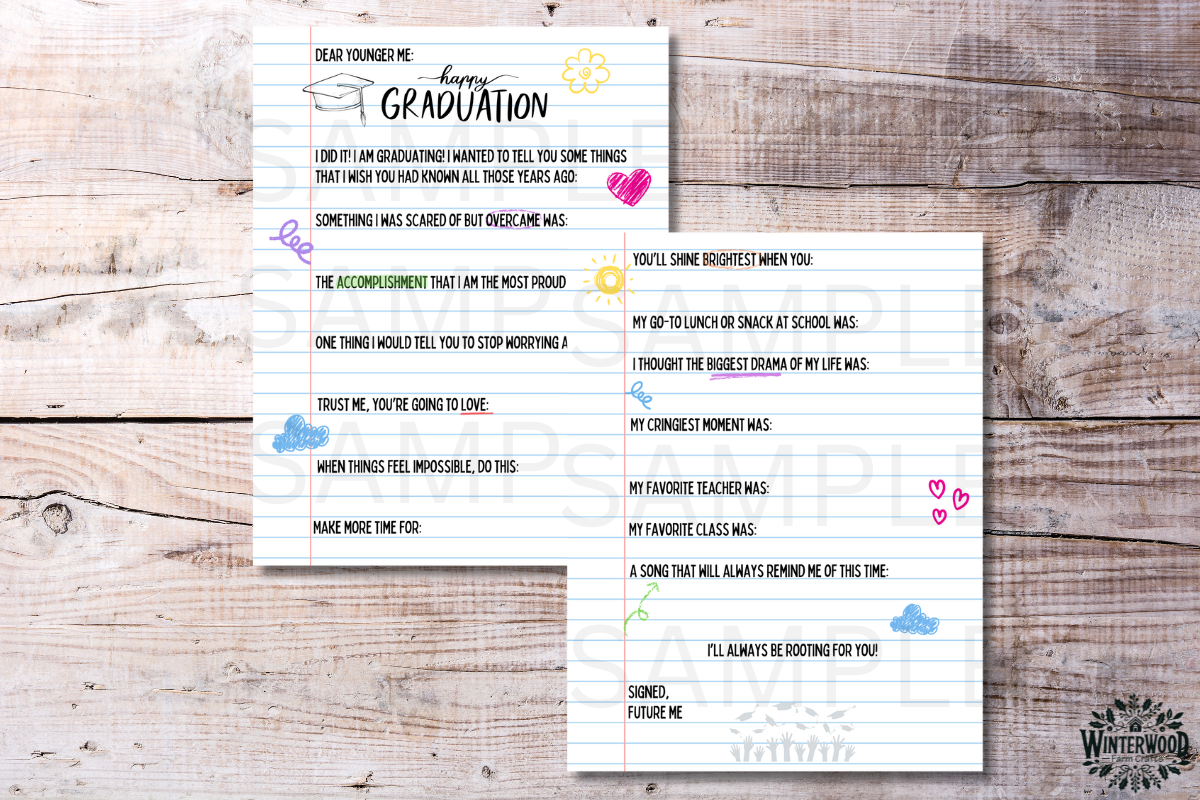 DEAR YOUNGER ME:
happy
GRADUATION
I DID IT! I AM GRADUATING! I WANTED TO TELL YOU SOME THINGS
THAT I WISH YOU HAD KNOWN ALL THOSE YEARS AGO:
SOMETHING I WAS SCARED OF BUT OVERCAME WAS:
THE ACCOMPLISHMENT THAT I AM THE MOST PROUD
ONE THING I WOULD TELL YOU TO STOP WORRYING A
TRUST ME, YOU'RE GOING TO LOVE:
WHEN THINGS FEEL IMPOSSIBLE, DO THIS:
MAKE MORE TIME FOR:
SAMPLE
SAMPLE
SAMP
YOU'LL SHINE BRIGHTEST WHEN YOU:
MY GO-TO LUNCH OR SNACK AT SCHOOL WAS:
I THOUGHT THE BIGGEST DRAMA OF MY LIFE WAS:
MY CRINGIEST MOMENT WAS:
MY FAVORITE TEACHER WAS:
MY FAVORITE CLASS WAS:
A SONG THAT WILL ALWAYS REMIND ME OF THIS TIME:
I'LL ALWAYS BE ROOTING FOR YOU!
SIGNED,
FUTURE ME
SAMPLE
SAMPLE
SAMPLE
WINTERWOOD
Farm Crafts